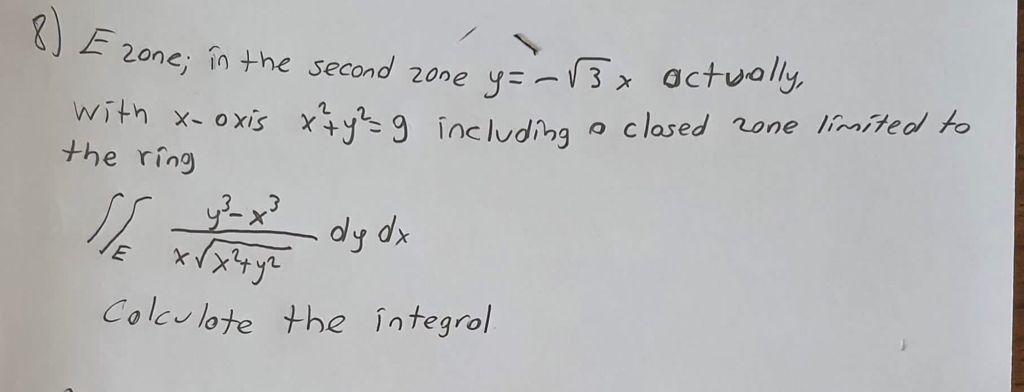 8) E zone; in the second zone y = -√3 x actually,
with x-axis x²+y²=9 including a closed zone limited to
the ring
∬_E (y³-x³)/(x√(x²+y²)) dy dx
Calculate the integral